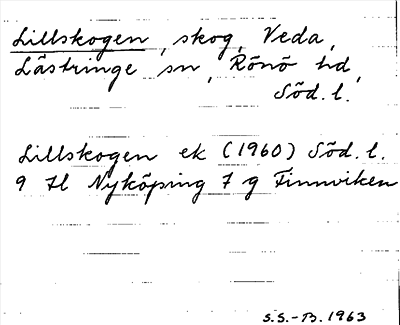 Lillskogen, skog, Veda,
Lästringe sn, Rönö hd,
Söd. l.
Lillskogen ek (1960) Söd. l.
9 H Nyköping 7 g Finnviken
S.S.-B. 1963